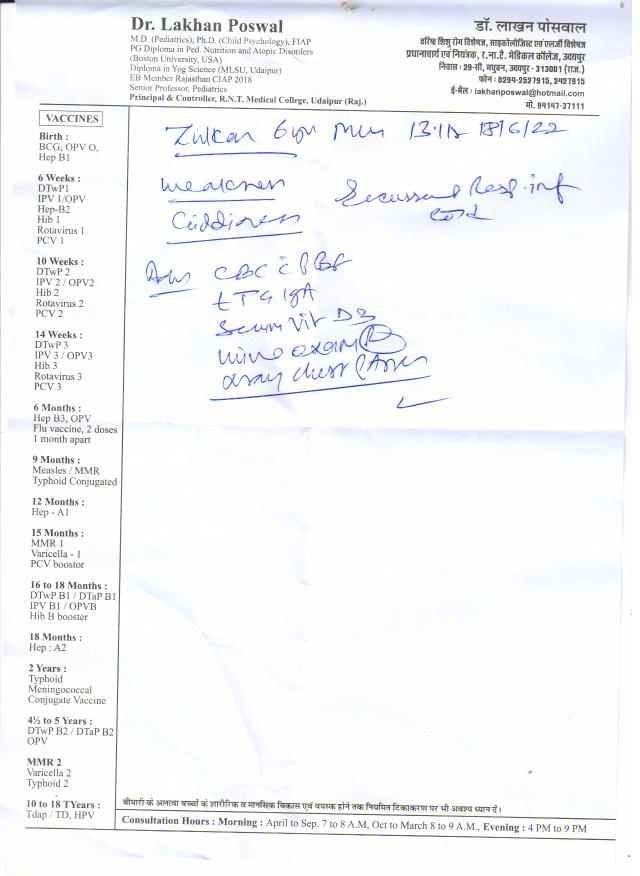 Dr. Lakhan Poswal
M.D. (Pediatrics), Ph.D. (Child Psychology), FIAP
PG Diploma in Ped. Nutrition and Atopic Disorders
(Boston University, USA)
Diploma in Yog Science (MLSU, Udaipur)
EB Member Rajasthan CIAP 2018
Senior Professor, Pediatrics
Principal & Controller, R.N.T. Medical College, Udaipur (Raj.)
डॉ. लाखन पोसवाल
वरिष्ठ शिशु रोग विशेषज्ञ, साइकोलोजिस्ट एवं एलर्जी विशेषज्ञ
प्रधानाचार्य एवं नियंत्रक, र.ना.टै. मेडिकल कॉलेज, उदयपुर
निवास : 29-सी, मधुबन, उदयपुर - 313001 (राज.)
फोन : 0294-2527915, 2427915
ई-मेल : lakhanposwal@hotmail.com
मो. 94147-37111
VACCINES
Birth :
BCG, OPV O,
Hep B1
6 Weeks :
DTwP1
IPV 1/OPV
Hep-B2
Hib 1
Rotavirus 1
PCV 1
10 Weeks :
DTwP 2
IPV 2 / OPV2
Hib 2
Rotavirus 2
PCV 2
14 Weeks :
DTwP 3
IPV 3 / OPV3
Hib 3
Rotavirus 3
PCV 3
6 Months :
Hep B3, OPV
Flu vaccine, 2 doses
1 month apart
9 Months :
Measles / MMR
Typhoid Conjugated
12 Months :
Hep - A1
15 Months :
MMR 1
Varicella - 1
PCV boostor
16 to 18 Months :
DTwP B1 / DTaP B1
IPV B1 / OPVB
Hib B booster
18 Months :
Hep : A2
2 Years :
Typhoid
Meningococcal
Conjugate Vaccine
4½ to 5 Years :
DTwP B2 / DTaP B2
OPV
MMR 2
Varicella 2
Typhoid 2
10 to 18 TYears :
Tdap / TD, HPV
18/6/22
weakness
Giddiness
Resp. inf
CBC
tTG IgA
Serum Vit D3
urine exam
chest
बीमारी के अलावा बच्चों के शारीरिक व मानसिक विकास एवं वयस्क होने तक नियमित टिकाकरण पर भी अवश्य ध्यान दें।
Consultation Hours : Morning : April to Sep. 7 to 8 A.M, Oct to March 8 to 9 A.M., Evening : 4 PM to 9 PM